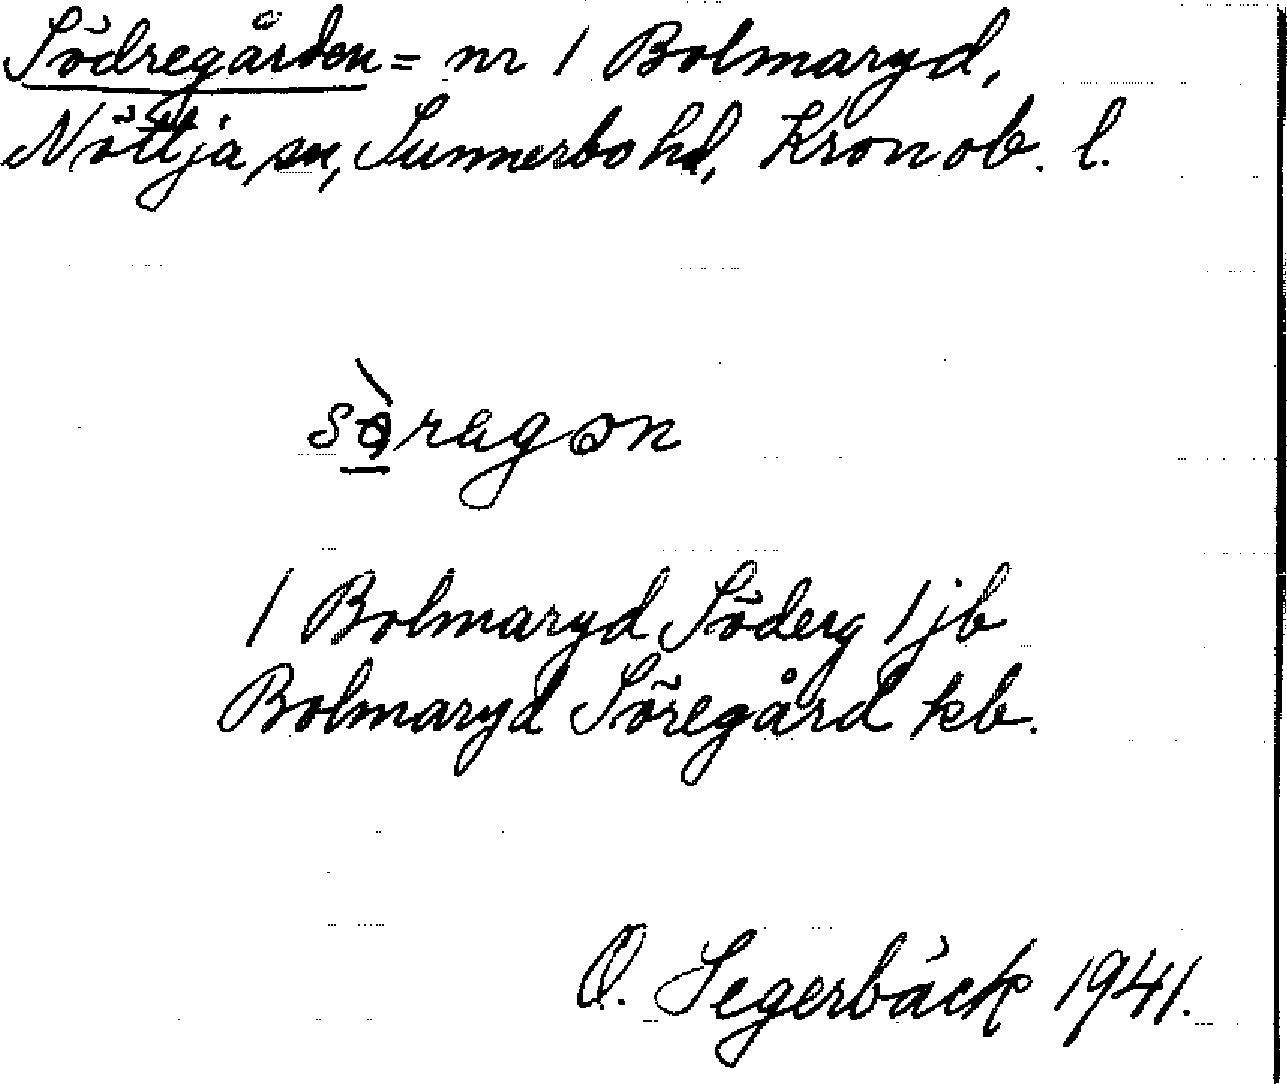 Södregården = nr 1 Bolmaryd,
Nöttja sn, Sunnerbo hd, Kronob. l.
sø̱̀ragɔn
1 Bolmaryd Söderg 1 jb
Bolmaryd Söregård kb.
O. Segerbäck 1941.